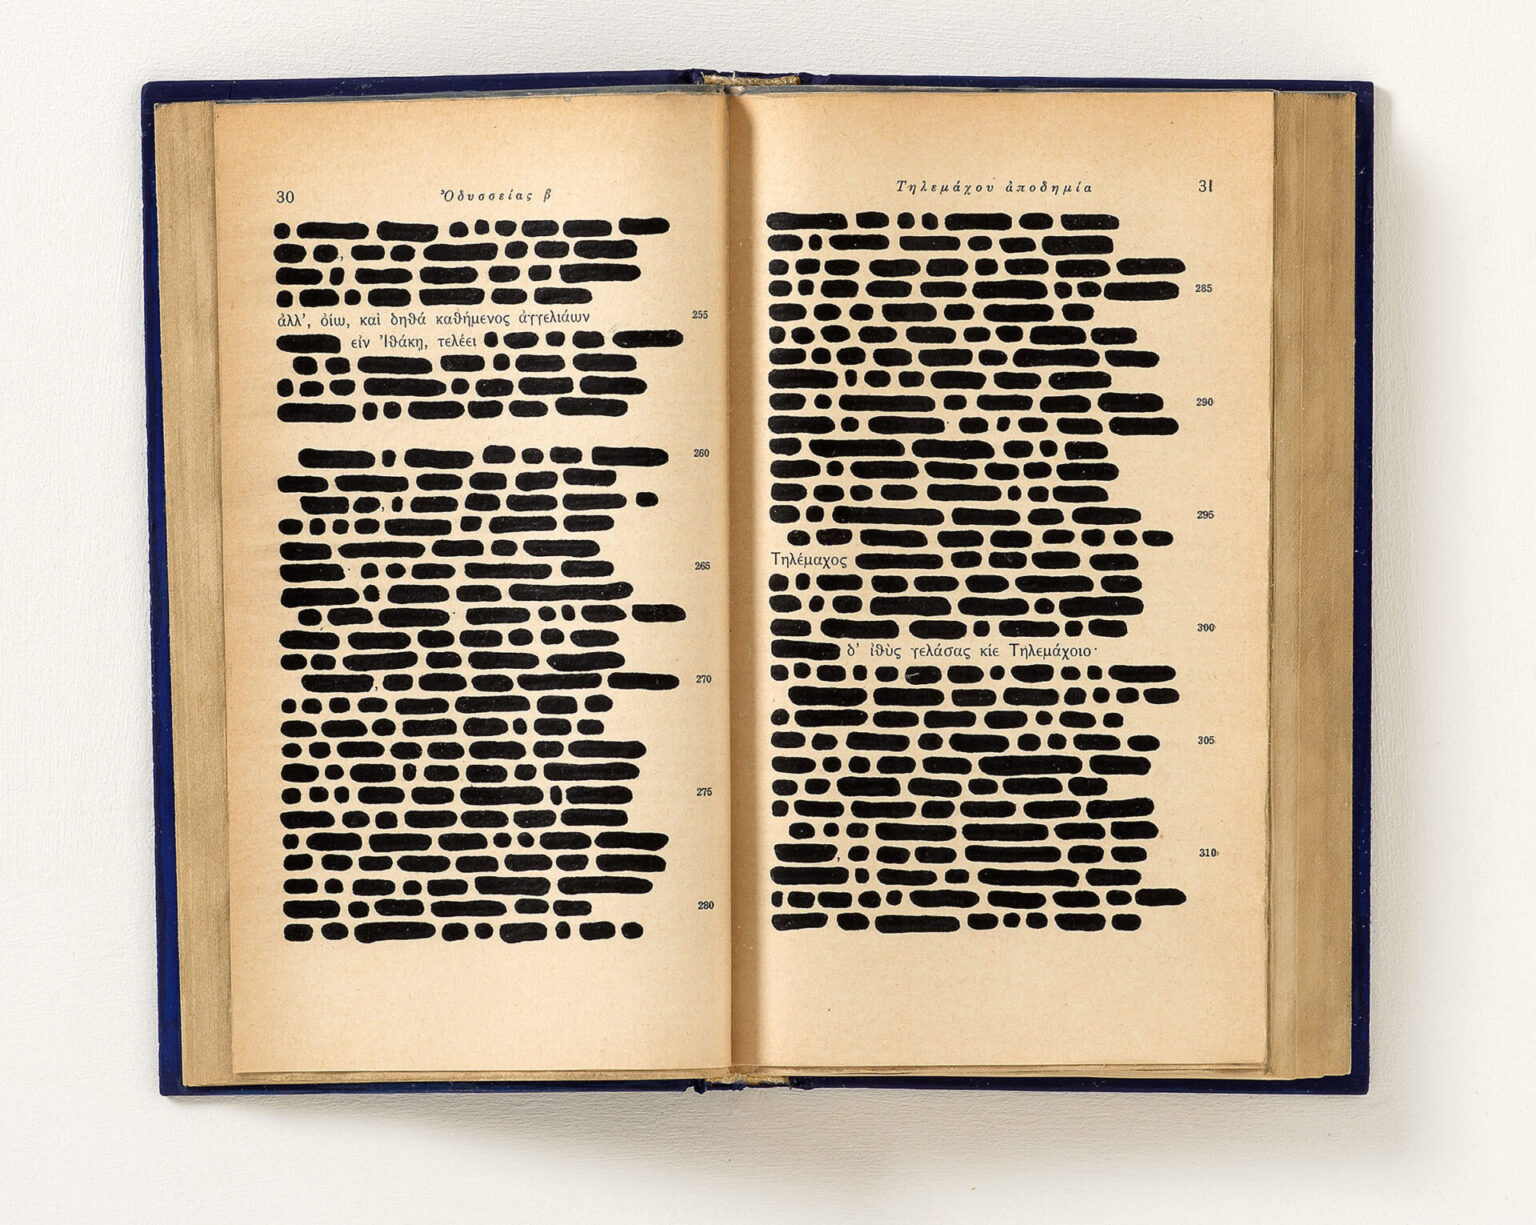 30 Ὀδυσσείας β
ἀλλ’, ὀίω, καὶ δηθά καθήμενος ἀγγελιάων 255
εἰν Ἰθάκῃ, τελέει
260
265
270
275
280
Τηλεμάχου ἀποδημία 31
285
290
295
Τηλέμαχος
300
δ’ ἰθὺς γελάσας κίε Τηλεμάχοιο·
305
310